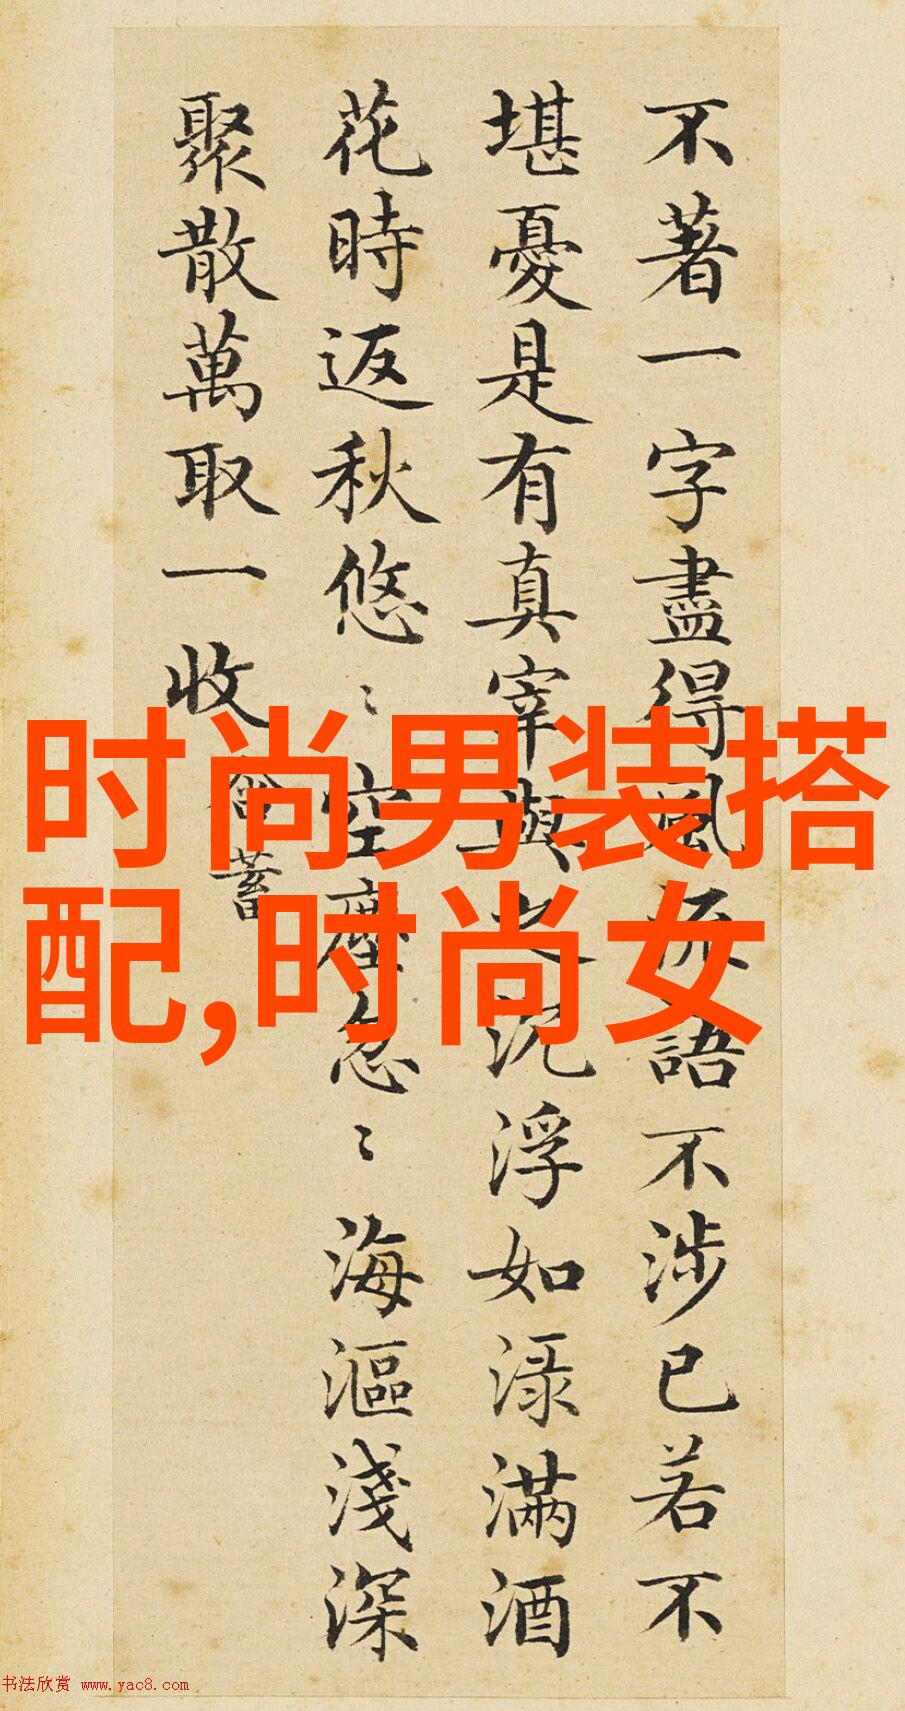 不著一字盡得風流語不涉已若不
堪憂是有真宰與之沉浮如渌滿酒
花時返秋悠〻空塵忽〻海漚淺深
聚散萬取一收 含蓄
时尚男装搭
配,时尚女
书法欣赏 www.yac8.com